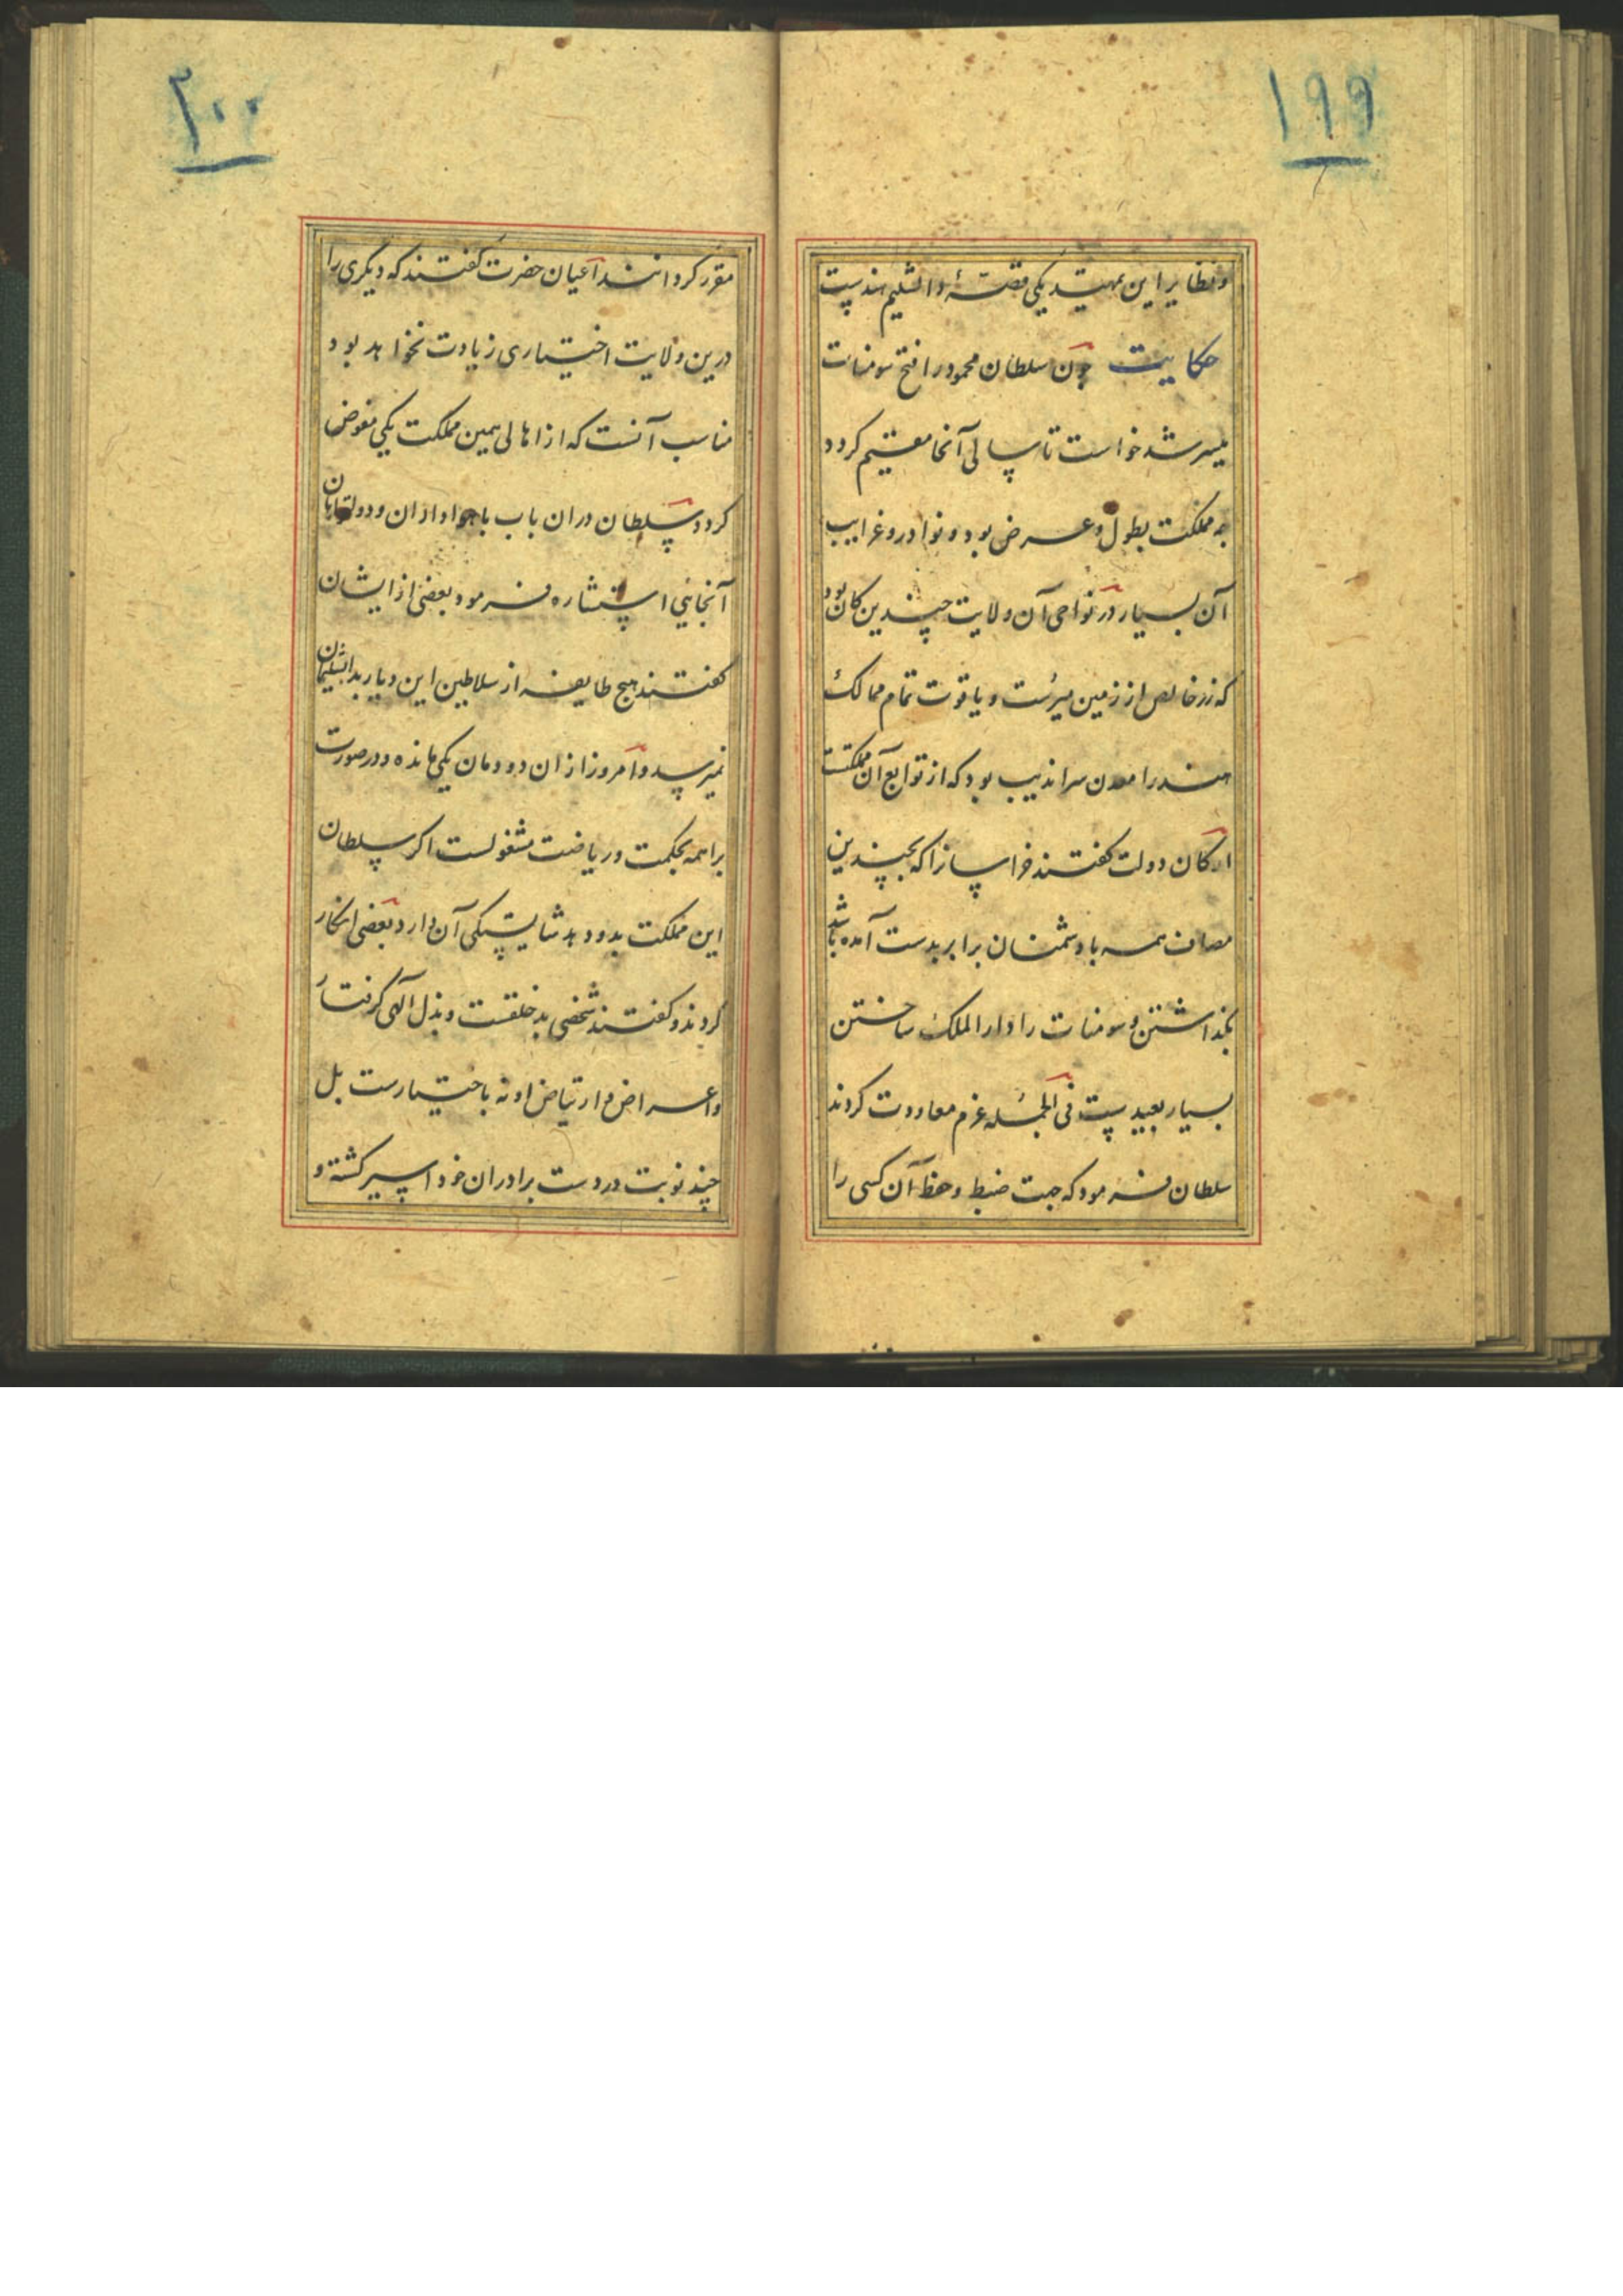 ۱۹۹
و نظایر این تمهید یکی قصهٔ دابشلیم هندیست
حکایت چون سلطان محمود را فتح سومنات
میسر شد خواست تا سالی آنجا مقیم گردد
چه مملکت بطول و عرض بود و نوادر و غرایب
آن بسیار در نواحی آن ولایت چندین کان بود
که زر خالص از زمین میرست و یاقوت تمام ممالک
هند را معدن سراندیب بود که از توابع آن مملکتست
ارکان دولت گفتند خراسانرا که بچندین
مصاف همه با دشمنان برابر بدست آمده باشد
بگذاشتن و سومنات را دارالملک ساختن
بسیار بعیدست فی الجمله عزم معاودت کردند
سلطان فرمود که جهت ضبط و حفظ آن کسی را
۲۰۰
مقرر گردانند اعیان حضرت گفتند که دیگری را
درین ولایت اختیاری زیادت نخواهد بود
مناسب آنست که از اهالی همین مملکت یکی مفوض
گردد سلطان دران باب با هواداران و دولتخواهان
آنجایی استشاره فرمود بعضی از ایشان
گفتند هیچ طایفه از سلاطین این دیار بدابشلیمان
نمیرسد و امروز ازان دودمان یکی مانده و در صورت
براهمه بحکمت و ریاضت مشغولست اگر سلطان
این مملکت بدو دهد شایستگی آن دارد بعضی انکار
کردند و گفتند شخصی بد خلقست و بذل الهی گرفتار
و اعراض و ارتیاض او نه باختیارست بل
چند نوبت در دست برادران خود اسیر گشته و